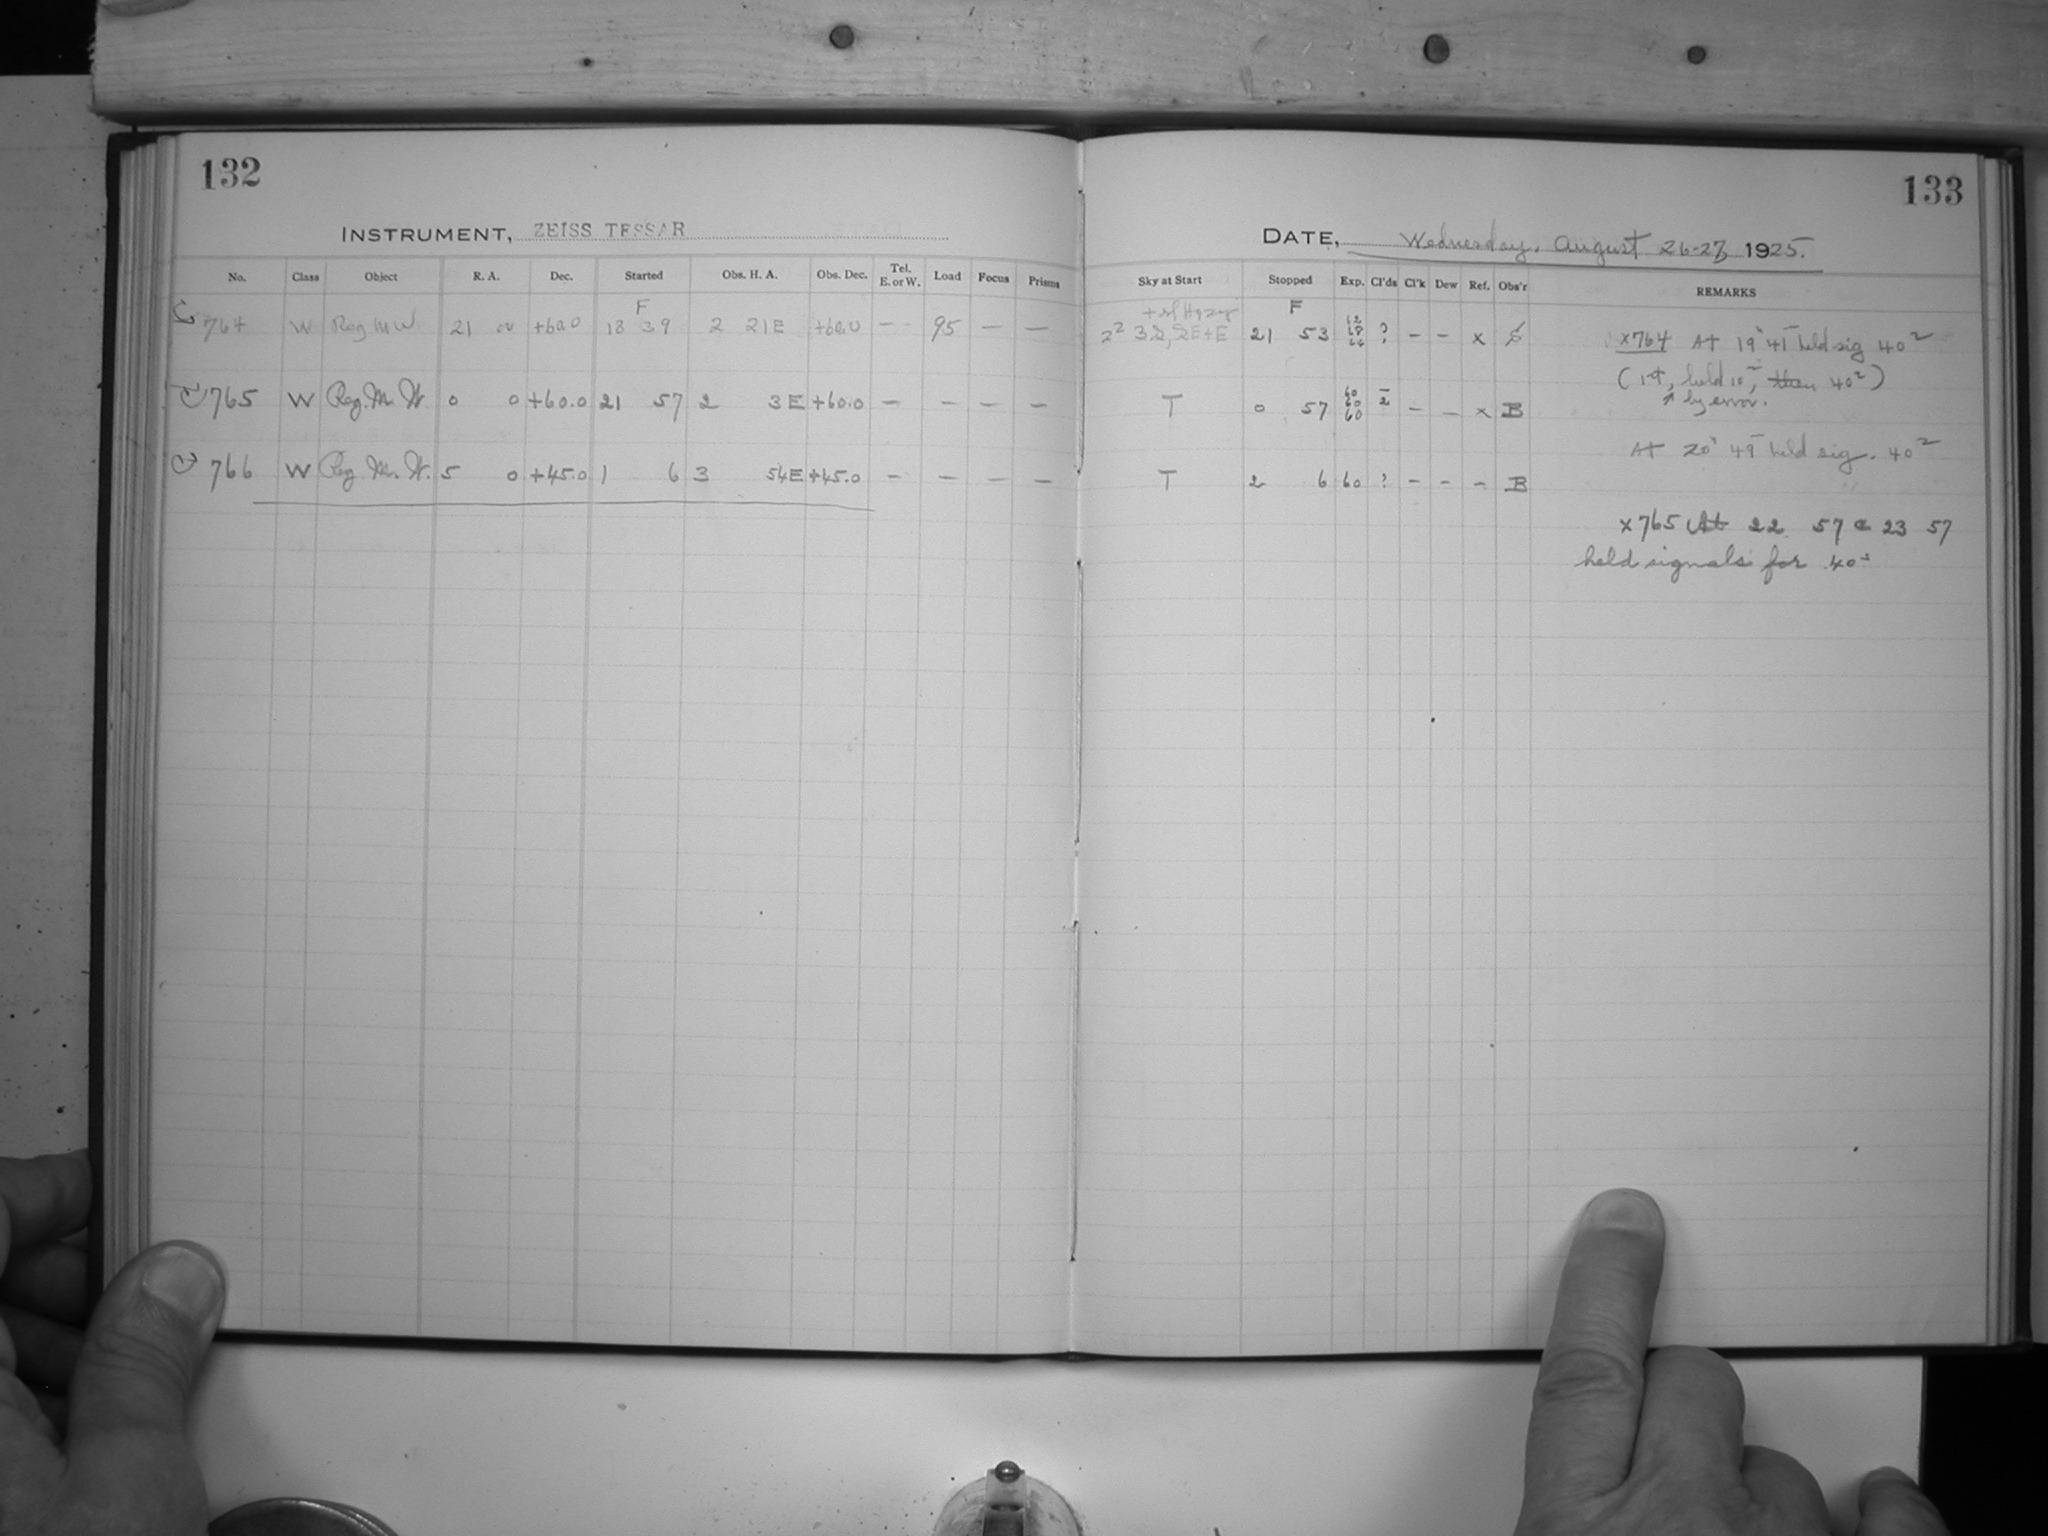 132
INSTRUMENT, ZEISS TESSAR
No. Class Object R. A. Dec. Started Obs. H. A. Obs. Dec. Tel. E. or W. Load Focus Prisms
F
764 W Reg M W 21 00 +60.0 18 39 2 21E +60.0 — 95 — —
765 W Reg. M. W. 0 0 +60.0 21 57 2 3E +60.0 — — — —
766 W Reg M. W. 5 0 +45.0 1 6 3 54E +45.0 — — — —
133
DATE, Wednesday, August 26-27, 1925.
Sky at Start Stopped Exp. Cl'ds Cl'k Dew Ref. Obs'r REMARKS
F
21 53 ? — — x
T 0 57 60 60 60 2 — — x B
T 2 6 60 ? — — — B
x764 At 19 41 held sig 40
(1st, held 10, then 40)
by error.
At 20 49 held sig. 40
x765 At 22 57 & 23 57
held signals for 40